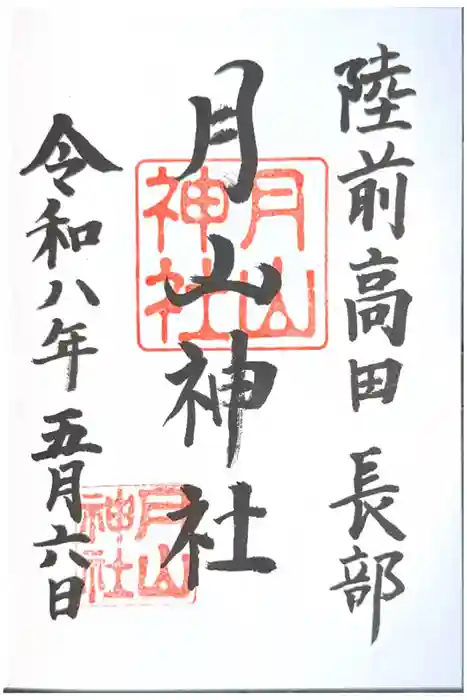 陸前高田 長部
月山神社
月山神社
令和八年 五月六日
月山神社